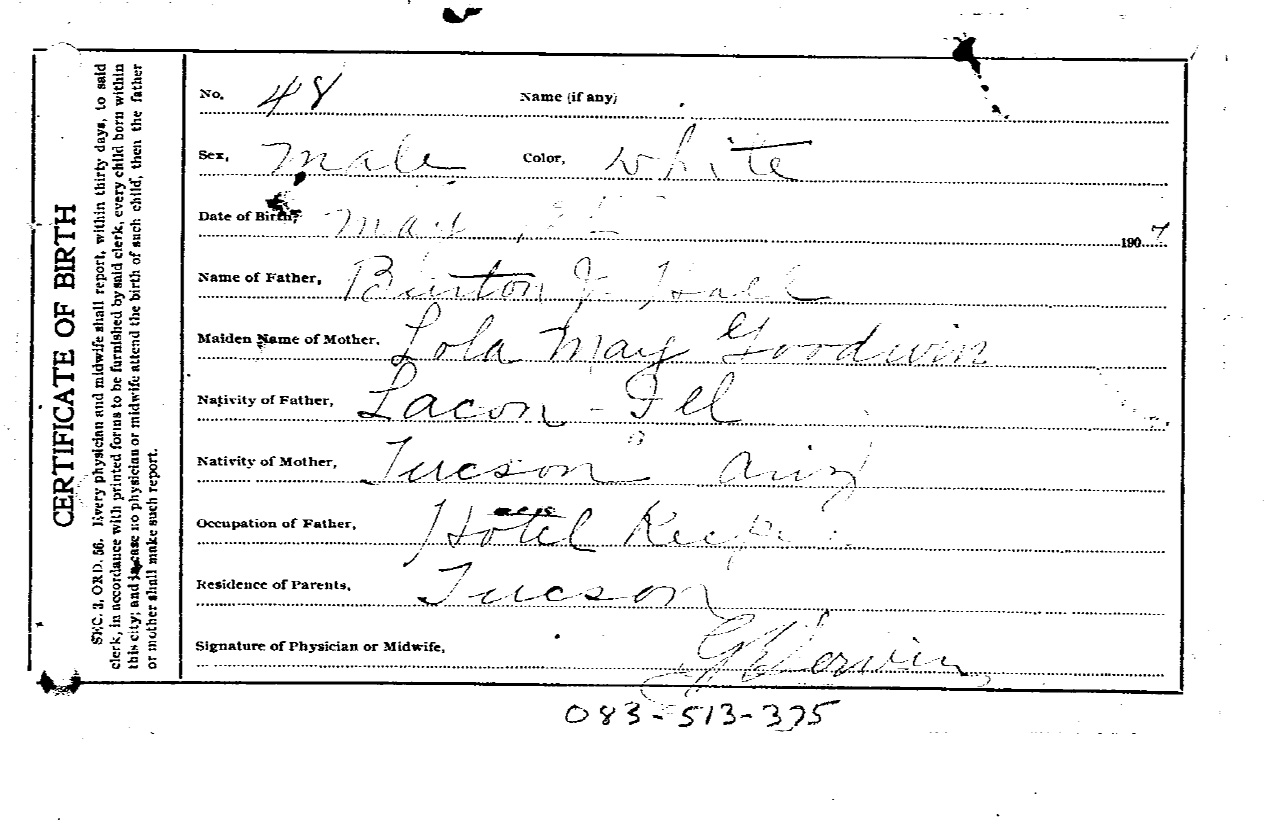 CERTIFICATE OF BIRTH
SEC. 3, ORD. 56. Every physician and midwife shall report, within thirty days, to said
clerk, in accordance with printed forms to be furnished by said clerk, every child born within
this city; and in case no physician or midwife attend the birth of such child, then the father
or mother shall make such report.
No. 48 Name (if any)
Sex, Male Color, White
Date of Birth, May 1907
Name of Father, Burton J. Hall
Maiden Name of Mother, Lola May Goodwin
Nativity of Father, Lacon - Ill
Nativity of Mother, Tucson Ariz
Occupation of Father, Hotel Keeper
Residence of Parents, Tucson
Signature of Physician or Midwife,
083-513-375